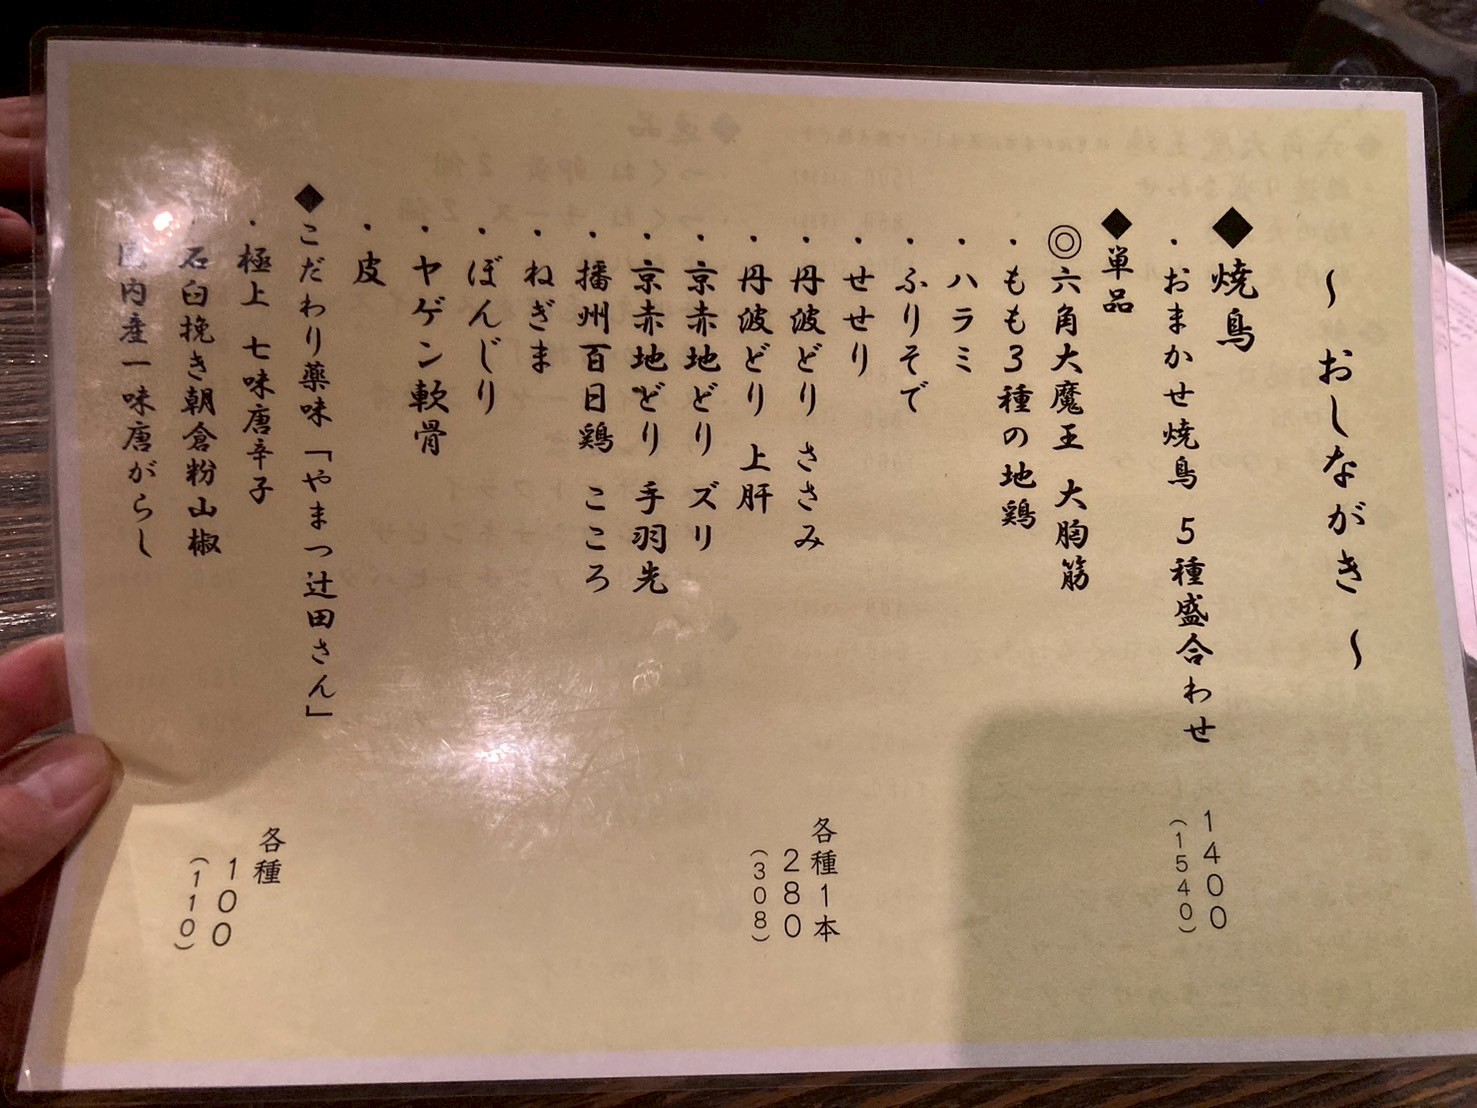 ～ おしながき ～
◆焼鳥
・おまかせ焼鳥 5種盛合わせ
1400
(1540)
◆単品
◎六角大魔王 大胸筋
・もも3種の地鶏
・ハラミ
・ふりそで
・せせり
・丹波どり ささみ
・丹波どり 上肝
・京赤地どり ズリ
・京赤地どり 手羽先
・播州百日鶏 こころ
・ねぎま
・ぼんじり
・ヤゲン軟骨
・皮
各種1本
280
(308)
◆こだわり薬味「やまつ辻田さん」
・極上 七味唐辛子
・石臼挽き朝倉粉山椒
国内産一味唐がらし
各種
100
(110)